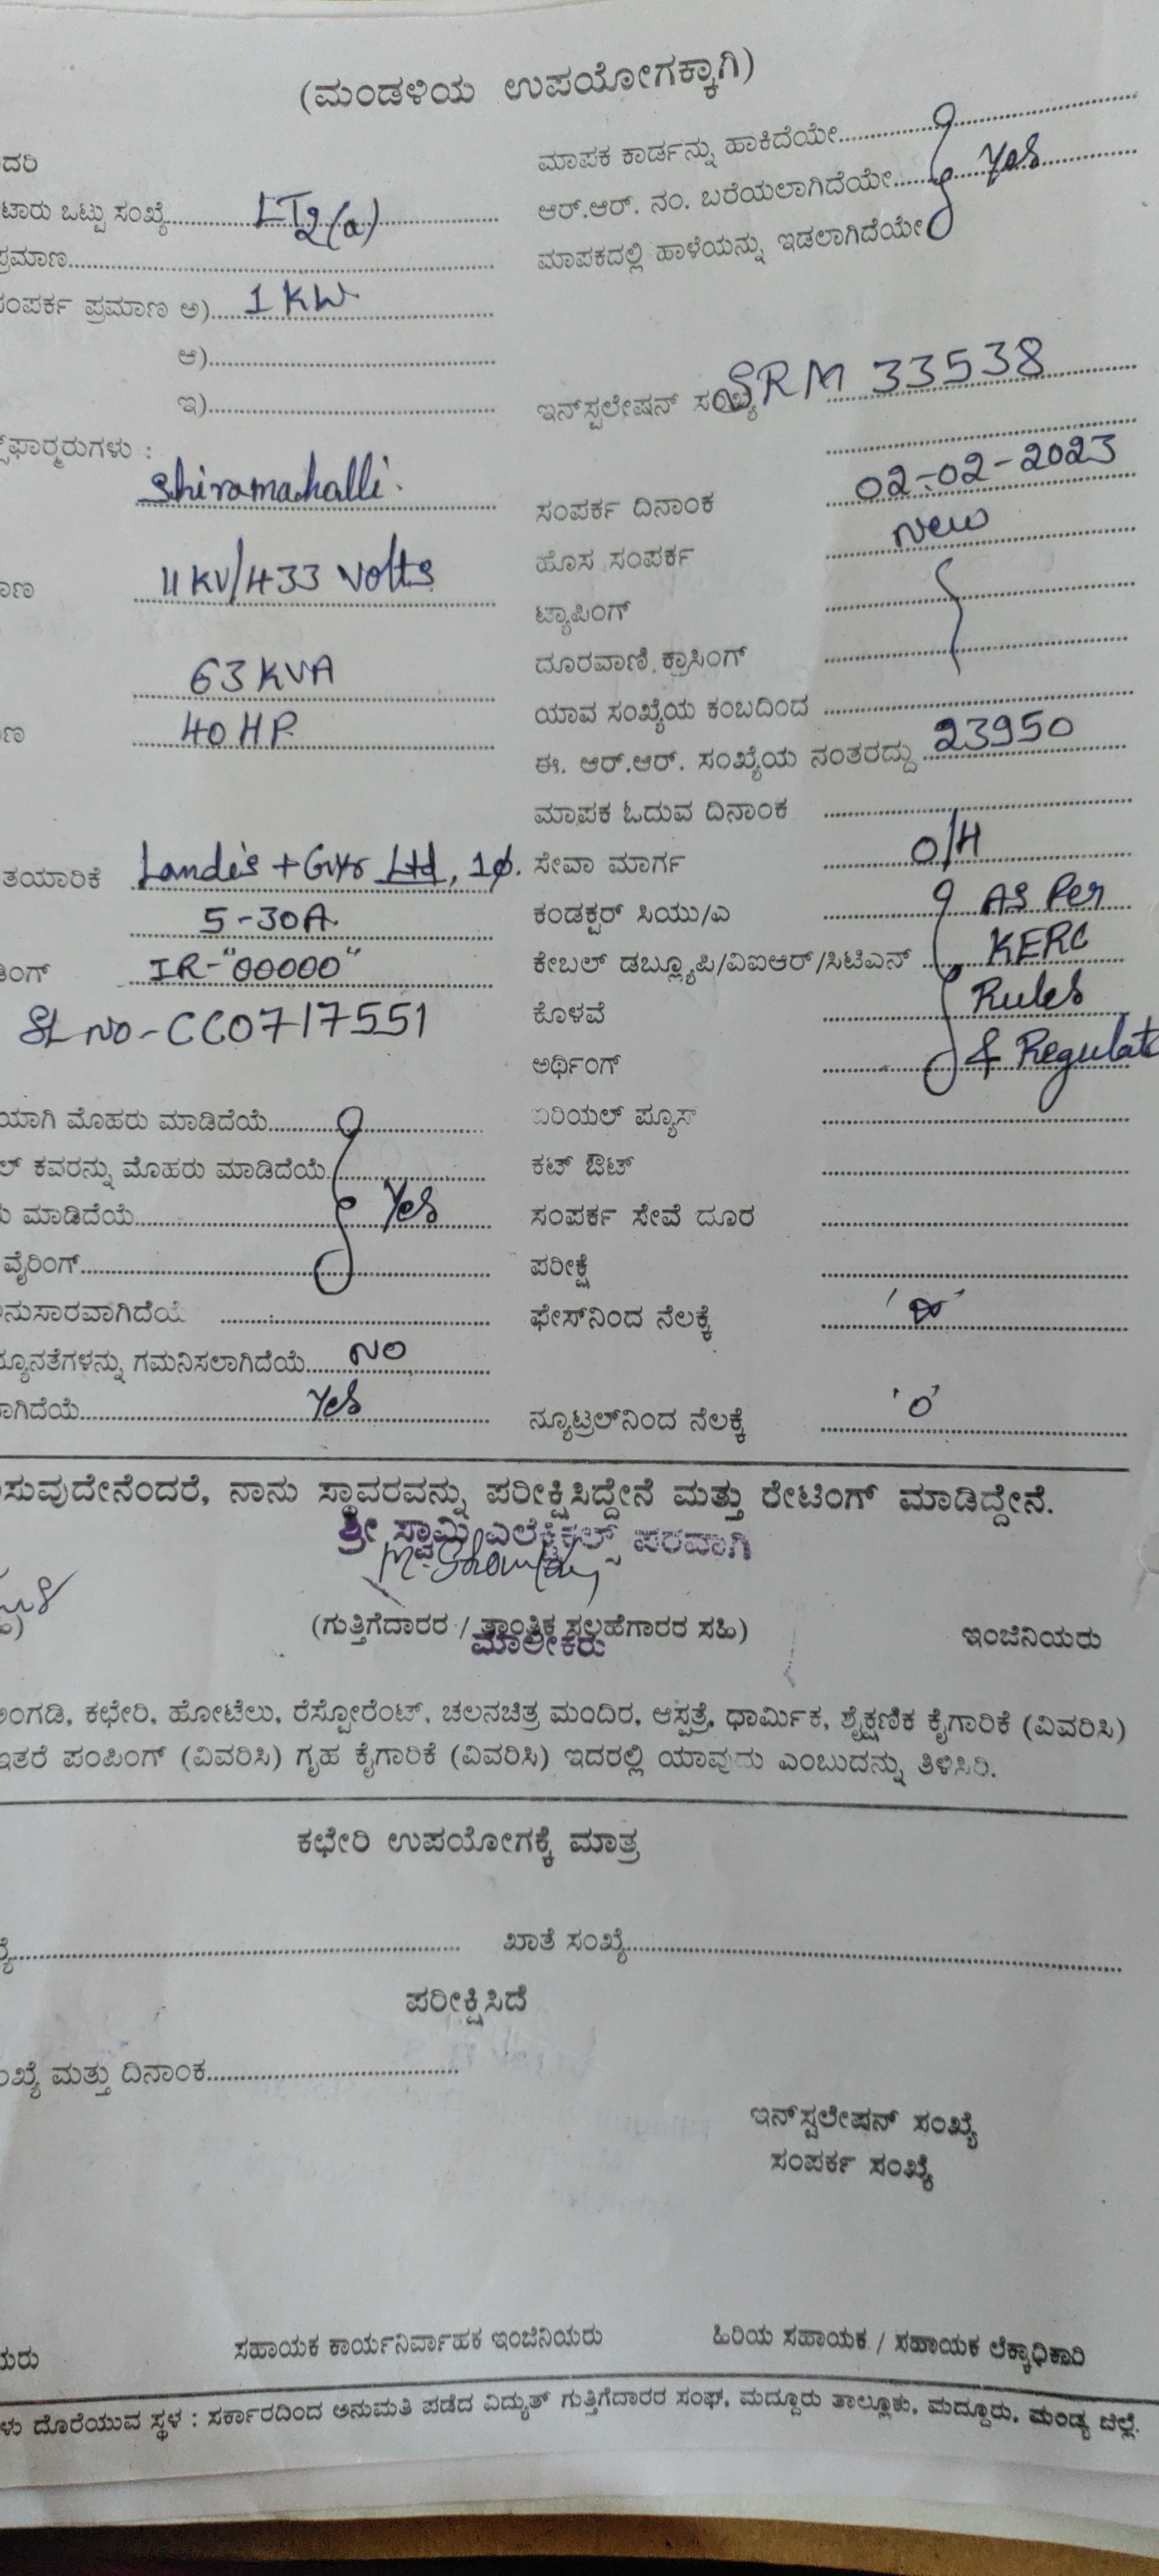 (ಮಂಡಳಿಯ ಉಪಯೋಗಕ್ಕಾಗಿ)
ದರಿ
ಮಾಪಕ ಕಾರ್ಡನ್ನು ಹಾಕಿದೆಯೇ
ಟಾರು ಒಟ್ಟು ಸಂಖ್ಯೆ LT2(a)
ಆರ್.ಆರ್. ನಂ. ಬರೆಯಲಾಗಿದೆಯೇ Yes
ಪ್ರಮಾಣ
ಮಾಪಕದಲ್ಲಿ ಹಾಳೆಯನ್ನು ಇಡಲಾಗಿದೆಯೇ
ಸಂಪರ್ಕ ಪ್ರಮಾಣ ಅ) 1 KW
ಆ)
ಇ)
ಇನ್‌ಸ್ಟಲೇಷನ್ ಸಂಖ್ಯೆ SRM 33538
ಸ್‌ಫಾರ್ಮರುಗಳು :
Shivamahalli
ಸಂಪರ್ಕ ದಿನಾಂಕ 02-02-2023
ಹೊಸ ಸಂಪರ್ಕ New
ಮಾಣ 11 KV/433 Volts
ಟ್ಯಾಪಿಂಗ್
ದೂರವಾಣಿ ಕ್ರಾಸಿಂಗ್
63 KVA
ಯಾವ ಸಂಖ್ಯೆಯ ಕಂಬದಿಂದ
ಣ 40 HP
ಈ. ಆರ್.ಆರ್. ಸಂಖ್ಯೆಯ ನಂತರದ್ದು 23950
ಮಾಪಕ ಓದುವ ದಿನಾಂಕ
ತಯಾರಿಕೆ Landis + Gyr Ltd, 1φ.
ಸೇವಾ ಮಾರ್ಗ O/H
5-30A
ಕಂಡಕ್ಟರ್ ಸಿಯು/ಎ As Per
ಡಿಂಗ್ IR-"00000"
ಕೇಬಲ್ ಡಬ್ಲ್ಯೂಪಿ/ವಿಐಆರ್/ಸಿಟಿಎನ್ KERC
SL NO-CC0717551
ಕೊಳವೆ Rules
ಅರ್ಥಿಂಗ್ & Regulat
ಯಾಗಿ ಮೊಹರು ಮಾಡಿದೆಯೆ
ಏರಿಯಲ್ ಪ್ಯೂಸ್
ಲ್ ಕವರನ್ನು ಮೊಹರು ಮಾಡಿದೆಯೆ
ಕಟ್ ಔಟ್
ು ಮಾಡಿದೆಯೆ Yes
ಸಂಪರ್ಕ ಸೇವೆ ದೂರ
ವೈರಿಂಗ್
ಪರೀಕ್ಷೆ
ನುಸಾರವಾಗಿದೆಯೆ
ಫೇಸ್‌ನಿಂದ ನೆಲಕ್ಕೆ
ನ್ಯೂನತೆಗಳನ್ನು ಗಮನಿಸಲಾಗಿದೆಯೆ NO
ಾಗಿದೆಯೆ Yes
ನ್ಯೂಟ್ರಲ್‌ನಿಂದ ನೆಲಕ್ಕೆ 'o'
ಸುವುದೇನೆಂದರೆ, ನಾನು ಸ್ಥಾವರವನ್ನು ಪರೀಕ್ಷಿಸಿದ್ದೇನೆ ಮತ್ತು ರೇಟಿಂಗ್ ಮಾಡಿದ್ದೇನೆ.
ಶ್ರೀ ಸ್ವಾಮಿ ಎಲೆಕ್ಟ್ರಿಕಲ್ಸ್ ಪರವಾಗಿ
(ಗುತ್ತಿಗೆದಾರರ / ತಾಂತ್ರಿಕ ಸಲಹೆಗಾರರ ಸಹಿ)
ಇಂಜಿನಿಯರು
ಮಾಲೀಕರು
ಅಂಗಡಿ, ಕಛೇರಿ, ಹೋಟೆಲು, ರೆಸ್ಟೋರೆಂಟ್, ಚಲನಚಿತ್ರ ಮಂದಿರ, ಆಸ್ಪತ್ರೆ, ಧಾರ್ಮಿಕ, ಶೈಕ್ಷಣಿಕ ಕೈಗಾರಿಕೆ (ವಿವರಿಸಿ)
ಇತರೆ ಪಂಪಿಂಗ್ (ವಿವರಿಸಿ) ಗೃಹ ಕೈಗಾರಿಕೆ (ವಿವರಿಸಿ) ಇದರಲ್ಲಿ ಯಾವುದು ಎಂಬುದನ್ನು ತಿಳಿಸಿರಿ.
ಕಛೇರಿ ಉಪಯೋಗಕ್ಕೆ ಮಾತ್ರ
ಖಾತೆ ಸಂಖ್ಯೆ
ಪರೀಕ್ಷಿಸಿದೆ
ಂಖ್ಯೆ ಮತ್ತು ದಿನಾಂಕ
ಇನ್‌ಸ್ಟಲೇಷನ್ ಸಂಖ್ಯೆ
ಸಂಪರ್ಕ ಸಂಖ್ಯೆ
ಯರು
ಸಹಾಯಕ ಕಾರ್ಯನಿರ್ವಾಹಕ ಇಂಜಿನಿಯರು
ಹಿರಿಯ ಸಹಾಯಕ / ಸಹಾಯಕ ಲೆಕ್ಕಾಧಿಕಾರಿ
ಳು ದೊರೆಯುವ ಸ್ಥಳ : ಸರ್ಕಾರದಿಂದ ಅನುಮತಿ ಪಡೆದ ವಿದ್ಯುತ್ ಗುತ್ತಿಗೆದಾರರ ಸಂಘ, ಮದ್ದೂರು ತಾಲ್ಲೂಕು, ಮದ್ದೂರು, ಮಂಡ್ಯ ಜಿಲ್ಲೆ.